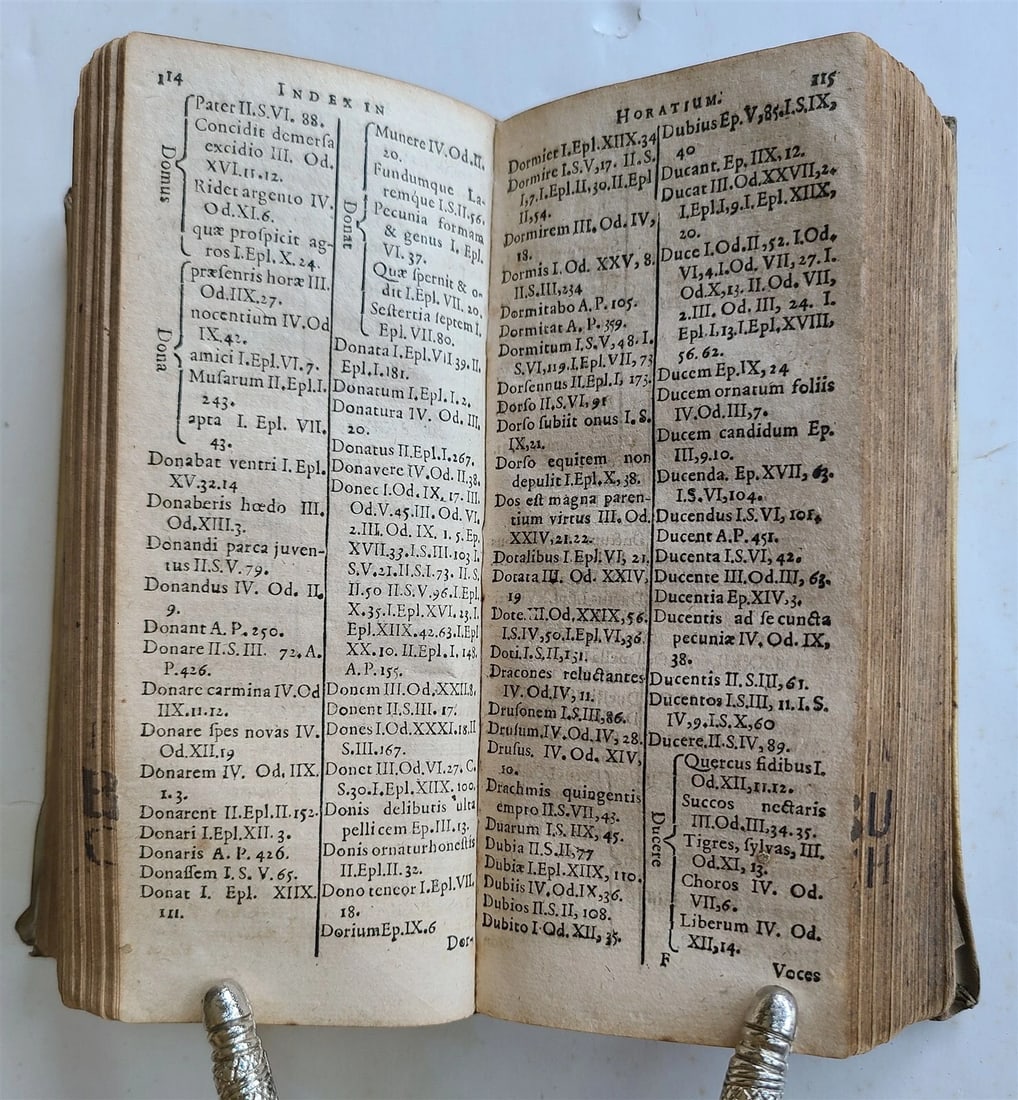 114
INDEX IN
Domus
Pater II.S.VI. 88.
Concidit demersa
excidio III. Od.
XVI.11.12.
Ridet argento IV.
Od.XI.6.
quæ prospicit ag-
ros I.Epl.X.24.
Dona
præsentis horæ III.
Od.IIX.27.
nocentium IV.Od
IX.42.
amici I.Epl.VI.7.
Musarum II.Epl.I.
243.
apta I. Epl. VII.
43.
Donabat ventri I. Epl.
XV.32.14
Donaberis hœdo III.
Od.XIII.3.
Donandi parca juven-
tus II.S.V. 79.
Donandus IV. Od. II,
9.
Donant A. P. 250.
Donare II.S.III. 72.A.
P.426.
Donare carmina IV.Od
IIX.11.12.
Donare spes novas IV.
Od.XII.19
Donarem IV. Od. IIX.
1.3.
Donarent II.Epl.II.152.
Donari I.Epl.XII.3.
Donaris A. P. 426.
Donassem I.S.V.65.
Donat I. Epl. XIIX.
111.
Donat
Munere IV.Od.II.
20.
Fundumque La-
remque I.S.II,56.
Pecunia formam
& genus I. Epl.
VI.37.
Quæ spernit & o-
dit I.Epl. VII. 20.
Sestertia septem I.
Epl. VII.80.
Donata I.Epl.VII 39.II.
Epl.I.181.
Donatum I.Epl.I.2.
Donatura IV. Od. III.
20.
Donatus II.Epl.I.267.
Donavere IV.Od.II,38.
Donec I.Od.IX.17.III.
Od.V.45.III.Od.VI.
2.III. Od. IX. 1.5.Ep.
XVII.33.I.S.III.103 I.
S.V.21.II.S.I.73. II.S.
II.50 II.S.V.96.I.Epl.
X.35.I.Epl.XVI.23.I.
Epl.XIIX.42.63.I.Epl
XX.10.II.Epl.I.148.
A.P.155.
Donem III.Od.XXII.8.
Donent II.S.III.17.
Dones I.Od.XXXI.18.II
S.III.167.
Donet III.Od.VI.27.C.
S.30.I.Epl.XIIX.100.
Donis delibutis ulta
pellicem Ep.III.13.
Donis ornatur honestis
II.Epl.II.32.
Dono tencor I.Epl.VII.
18.
Dorium Ep.IX.6
Dor-
HORATIUM.
115
Dormiet I.Epl.XIIX.34
Dormire I.S.V,17. II.S.
I,7.I.Epl.II,30.II.Epl
II,54.
Dormirem III. Od. IV,
18.
Dormis I. Od. XXV, 8.
II.S.III,234
Dormitabo A. P. 105.
Dormitat A. P. 359.
Dormitum I.S.V,48.I.
S.VI,119.I.Epl.VII,73
Dorsennus II.Epl.I, 173.
Dorso II.S.VI,91
Dorso subiit onus I. S.
IX,21.
Dorso equitem non
depulit I.Epl.X,38.
Dos est magna paren-
tium virtus III. Od.
XXIV,21.22.
Dotalibus I.Epl.VI, 21.
Dotata III. Od. XXIV,
19
Dote.III.Od.XXIX,56.
I.S.IV,50.I.Epl.VI,36.
Doti.I.S.II,131.
Dracones reluctantes
IV. Od.IV, 11.
Drusonem I.S.III,86.
Drusum.IV.Od.IV,28.
Drusus. IV. Od. XIV,
10.
Drachmis quingentis
empto II.S.VII,43.
Duarum I.S.IIX, 45.
Dubia II.S.II,77
Dubiæ I.Epl.XIIX, 110.
Dubiis IV.Od.IX,36.
Dubios II.S.II,108.
Dubito I.Od.XII,35.
Dubius Ep.V,85.I.S.IX,
40
Ducant. Ep. IIX, 12.
Ducat III.Od.XXVII,2.
I.Epl.I,9.I.Epl. XIIX,
20.
Duce I.Od.II,52. I.Od.
VI,4.I.Od. VII,27. I.
Od.X,13. II.Od. VII,
2.III. Od. III, 24. I.
Epl.I,13.I.Epl.XVIII,
56.62.
Ducem Ep.IX,24
Ducem ornatum foliis
IV.Od.III,7.
Ducem candidum Ep.
III,9.10.
Ducenda. Ep.XVII, 63.
I.S.VI,104.
Ducendus I.S.VI, 101.
Ducent A.P. 451.
Ducenta I.S.VI, 42.
Ducente III.Od.III, 63.
Ducentia Ep.XIV,3.
Ducentis ad se cuncta
pecuniæ IV. Od. IX,
38.
Ducentis II.S.III,61.
Ducentos I.S.III, 11.I.S.
IV,9.I.S.X,60
Ducere.II.S.IV, 89.
Ducere
Quercus fidibus I.
Od.XII,11.12.
Succos nectaris
III.Od.III,34.35.
Tigres, sylvas, III.
Od.XI, 13.
Choros IV. Od.
VII,6.
Liberum IV. Od.
XII,14.
F
Voces